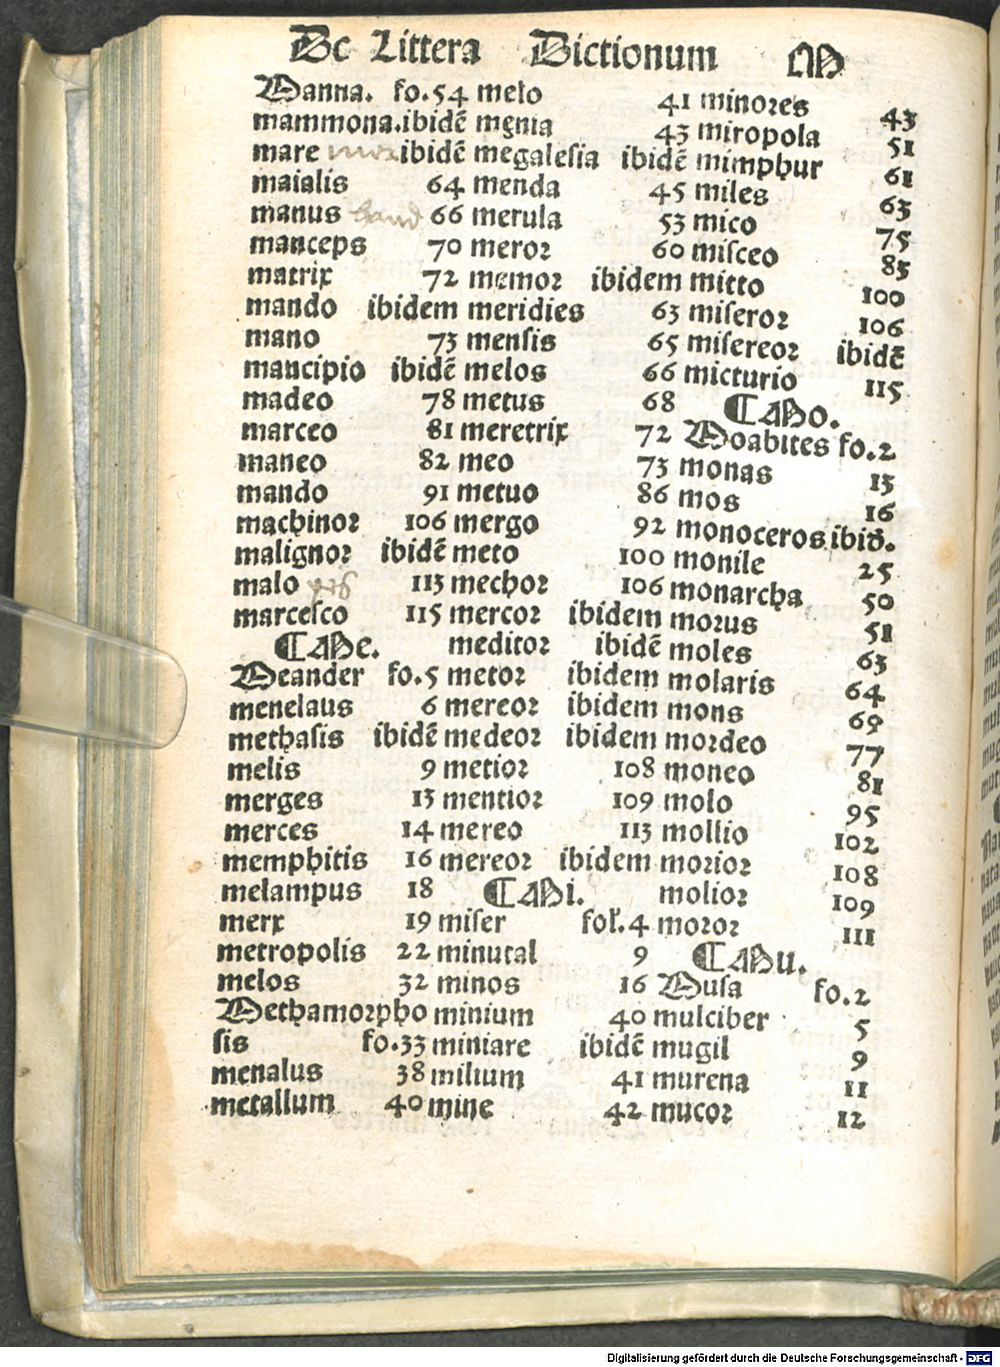 De Littera Dictionum M
Manna. fo.54
mammona.ibidē
mare ibidē
maialis 64
manus hand 66
manceps 70
matrix 72
mando ibidem
mano 73
mancipio ibidē
madeo 78
marceo 81
maneo 82
mando 91
machinor 106
malignor ibidē
malo 113
marcesco 115
¶ Me.
Meander fo.5
menelaus 6
methasis ibidē
melis 9
merges 13
merces 14
memphitis 16
melampus 18
merx 19
metropolis 22
melos 32
Methamorpho
sis fo.33
menalus 38
metallum 40
melo 41
menia 43
megalesia ibidē
menda 45
merula 53
meror 60
memor ibidem
meridies 63
mensis 65
melos 66
metus 68
meretrix 72
meo 73
metuo 86
mergo 92
meto 100
mechor 106
mercor ibidem
meditor ibidē
metor ibidem
mereor ibidem
medeor ibidem
metior 108
mentior 109
mereo 113
mereor ibidem
¶ Mi.
miser fol.4
minutal 9
minos 16
minium 40
miniare ibidē
milium 41
mine 42
minores 43
miropola 51
mimphur 61
miles 63
mico 75
misceo 85
mitto 100
miseror 106
misereor ibidē
micturio 115
¶ Mo.
Moabites fo.2
monas 13
mos 16
monoceros ibid.
monile 25
monarcha 50
morus 51
moles 63
molaris 64
mons 69
mordeo 77
moneo 81
molo 95
mollio 102
morior 108
molior 109
moror 111
¶ Mu.
Musa fo.2
mulciber 5
mugil 9
murena 11
mucor 12
Digitalisierung gefördert durch die Deutsche Forschungsgemeinschaft - DFG